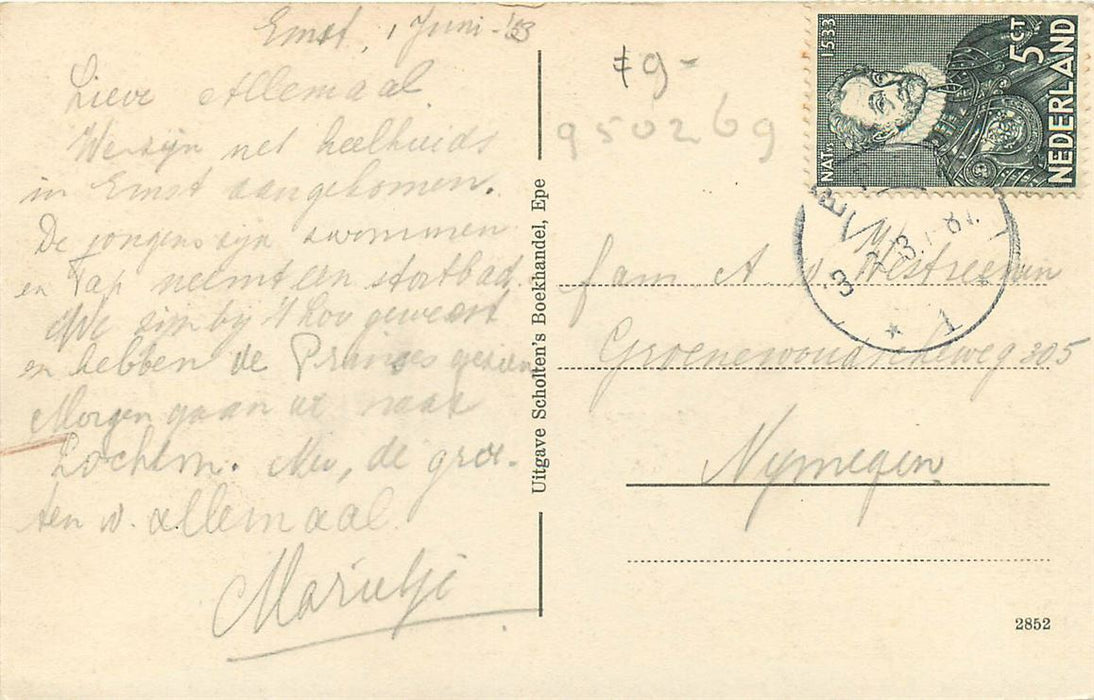 Emst, 1 Juni-'33
Lieve Allemaal.
We zijn net heelhuids
in Emst aangekomen.
De jongens zijn zwemmen
en Pap neemt een stortbad.
We zijn bij 't Loo geweest
en hebben de Prinses gezien
Morgen gaan we naar
Lochem. Nu, de groe-
ten v. allemaal.
Marietje
Uitgave Scholten's Boekhandel, Epe
9-
950269
NAT. 1533
5 CT
NEDERLAND
1
fam A. v Westreenen
Groenewoudscheweg 305
Nymegen
2852